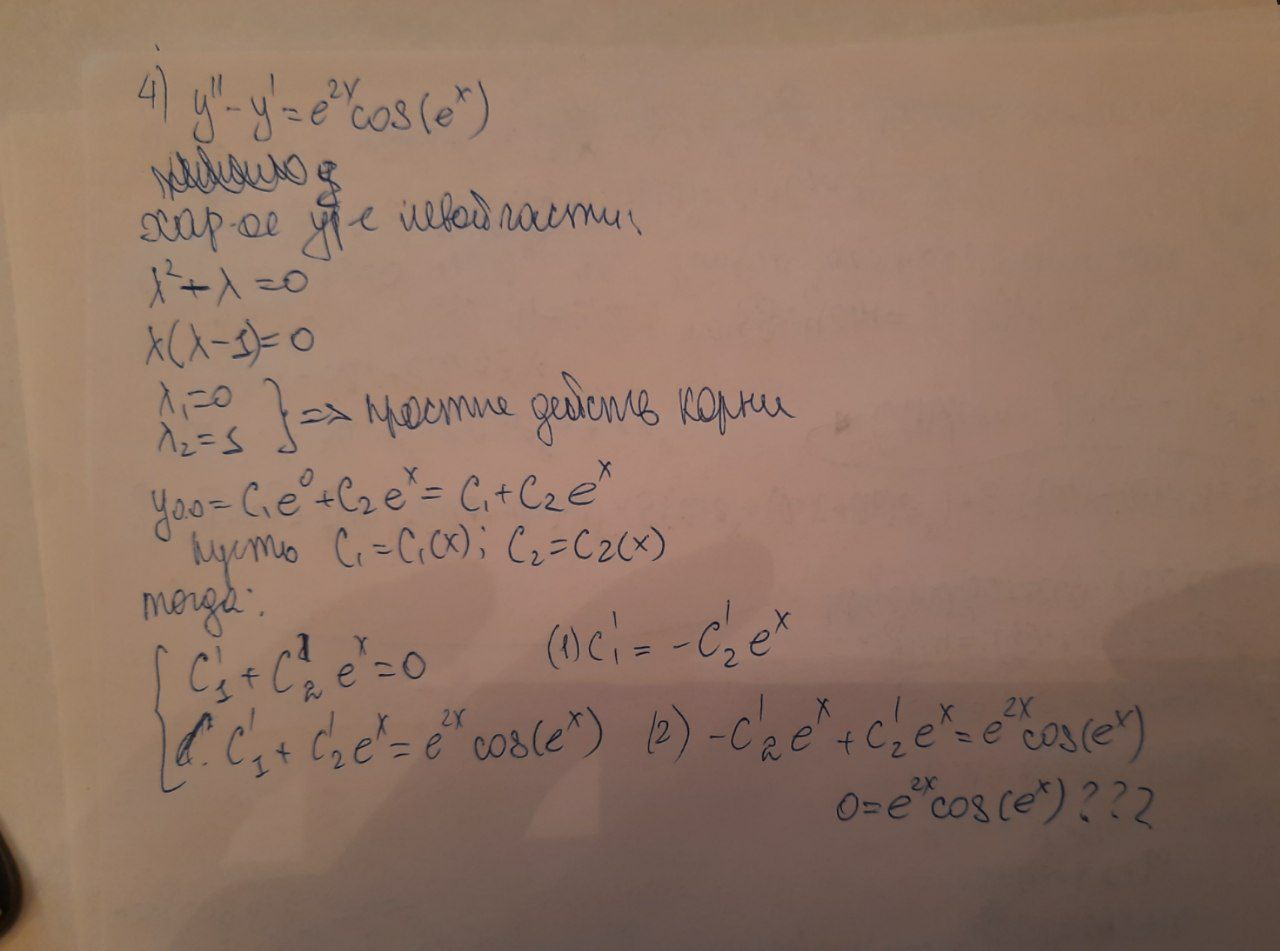 4) y'' - y' = e^{2x}cos(e^x)
хар-ое ур-е левой части:
λ² + λ = 0
λ(λ-1) = 0
λ₁ = 0
λ₂ = 1 } => простые действ корни
y₀.₀ = C₁e⁰ + C₂e^x = C₁ + C₂e^x
пусть C₁ = C₁(x); C₂ = C₂(x)
тогда:
{ C₁' + C₂'e^x = 0 (1) C₁' = -C₂'e^x
C₁' + C₂'e^x = e^{2x}cos(e^x) (2) -C₂'e^x + C₂'e^x = e^{2x}cos(e^x)
0 = e^{2x}cos(e^x)???